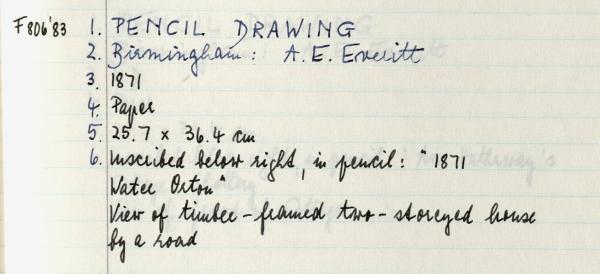 F806'83 1. PENCIL DRAWING
2. Birmingham: A.E. Everitt
3. 1871
4. Paper
5. 25.7 x 36.4 cm
6. Inscribed below right, in pencil: "1871
Water Orton"
View of timber-framed two-storeyed house
by a road